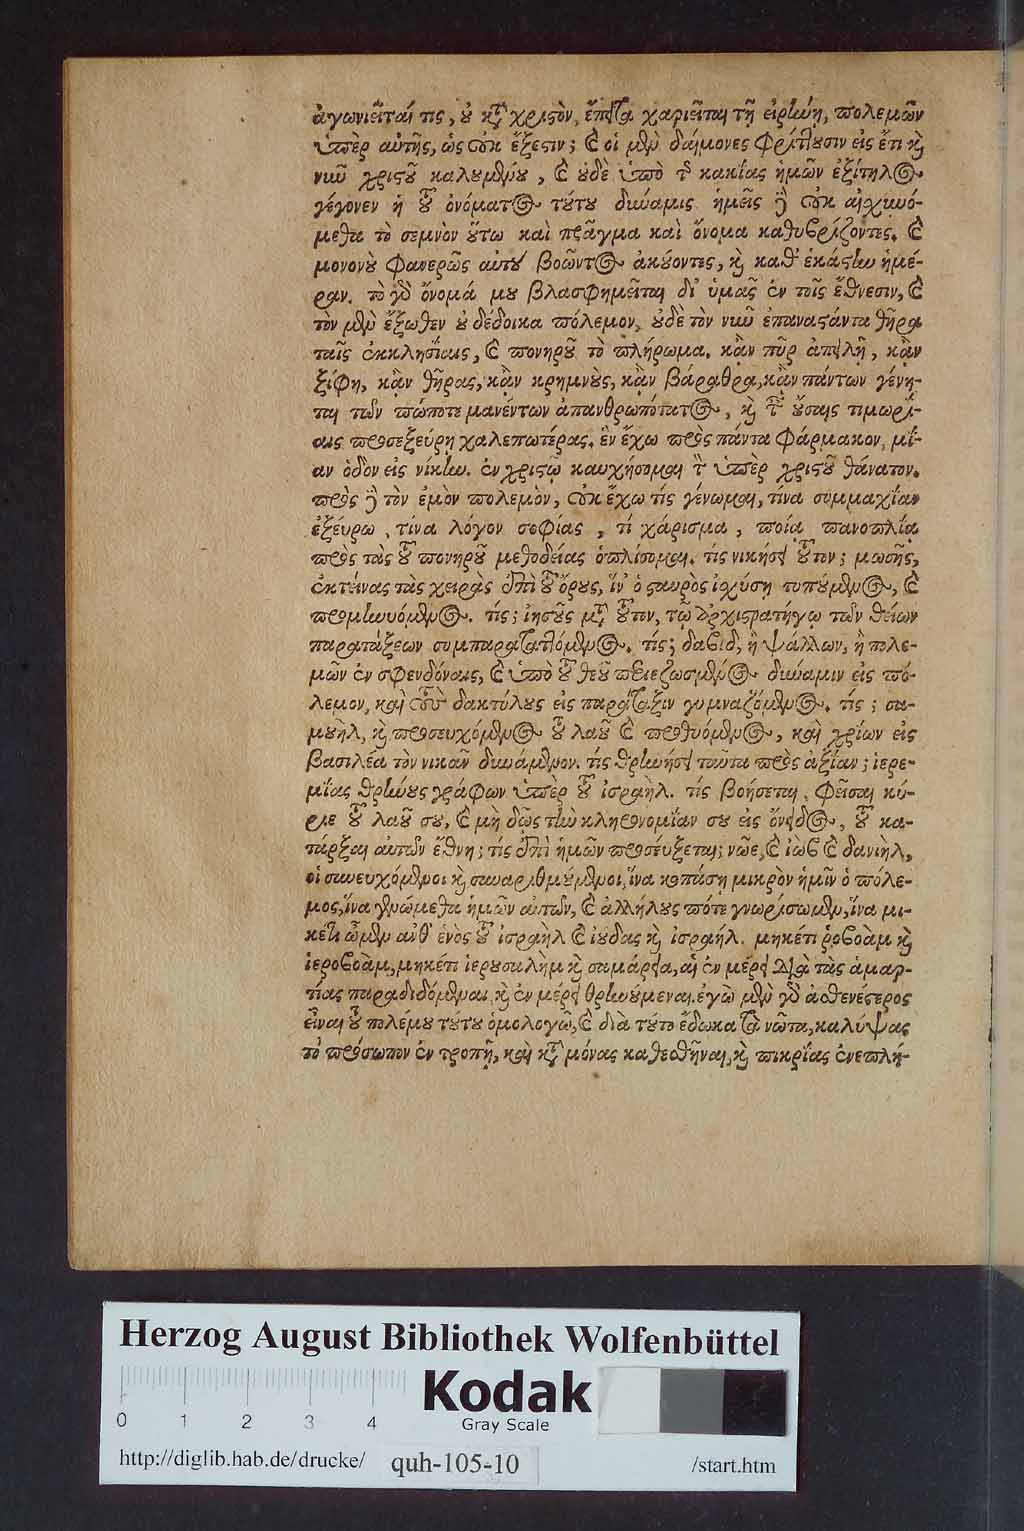 ἀγωνιεῖταί τις, οὐ κατὰ χριστὸν, ἔπειτα χαριεῖται τῇ εἰρήνῃ, πολεμῶν
ὑπὲρ αὐτῆς, ὡς οὐκ ἔξεστιν; καὶ οἱ μὲν δαίμονες φρίττουσιν εἰς ἔτι καὶ
νῦν χριστοῦ καλουμένου, καὶ οὐδὲ ὑπὸ τῆς κακίας ἡμῶν ἐξίτηλος
γέγονεν ἡ τοῦ ὀνόματος τούτου δύναμις. ἡμεῖς δὲ οὐκ αἰσχυνό-
μεθα τὸ σεμνὸν οὕτω καὶ πρᾶγμα καὶ ὄνομα καθυβρίζοντες. καὶ
μονονοὺ φανερῶς αὐτοῦ βοῶντος ἀκούοντες, καὶ καθ' ἑκάστην ἡμέ-
ραν. τὸ γὰρ ὄνομά μου βλασφημεῖται δι' ὑμᾶς ἐν τοῖς ἔθνεσιν, καὶ
τὸν μὲν ἔξωθεν οὐ δέδοικα πόλεμον, οὐδὲ τὸν νῦν ἐπαναστάντα θῆρα
ταῖς ἐκκλησίαις, καὶ πονηροῦ τὸ πλήρωμα. κἂν πῦρ ἀπειλῇ, κἂν
ξίφη, κἂν θῆρας, κἂν κρημνοὺς, κἂν βάραθρα, κἂν πάντων γένη-
ται τῶν πώποτε μανέντων ἀπανθρωπότατος, καὶ ταῖς οὔσαις τιμωρί-
αις προσεξεύρῃ χαλεπωτέρας. ἓν ἔχω πρὸς πάντα φάρμακον, μί-
αν ὁδὸν εἰς νίκην. ἐν χριστῷ καυχήσομαι τὸν ὑπὲρ χριστοῦ θάνατον.
πρὸς δὲ τὸν ἐμὸν πολεμὸν, οὐκ ἔχω τίς γένωμαι, τίνα συμμαχίαν
ἐξεύρω, τίνα λόγον σοφίας, τί χάρισμα, ποίᾳ πανοπλίᾳ
πρὸς τὰς τοῦ πονηροῦ μεθοδείας ὁπλίσομαι. τίς νικήσει τοῦτον; μωσῆς,
ἐκτείνας τὰς χειρὰς ἐπὶ τοῦ ὄρους, ἵν' ὁ σταυρὸς ἰσχύσῃ τυπούμενος, καὶ
προμηνυόμενος. τίς; ἰησοῦς μετὰ τοῦτον, τῷ ἀρχιστρατήγῳ τῶν θείων
παρατάξεων συμπαραταττόμενος. τίς; δαβὶδ, ἢ ψάλλων, ἢ πολε-
μῶν ἐν σφενδόναις, καὶ ὑπὸ τοῦ θεοῦ περιεζωσμένος δύναμιν εἰς πό-
λεμον, καὶ τοὺς δακτύλους εἰς παράταξιν γυμναζόμενος. τίς; σα-
μουὴλ, καὶ προσευχόμενος τοῦ λαοῦ καὶ προθυόμενος, καὶ χρίων εἰς
βασιλέα τὸν νικᾶν δυνάμενον. τίς θρηνήσει ταῦτα πρὸς ἀξίαν; ἱερε-
μίας θρήνους γράφων ὑπὲρ τοῦ ἰσραὴλ. τίς βοήσεται, φεῖσαι κύ-
ριε τοῦ λαοῦ σου, καὶ μὴ δῷς τὴν κληρονομίαν σου εἰς ὄνειδος, τοῦ κα-
τάρξαι αὐτῶν ἔθνη; τίς ἐπὶ ἡμῶν προσεύξεται; νῶε, καὶ ἰὼβ καὶ δανιὴλ,
οἱ συνευχόμενοι καὶ συναριθμούμενοι, ἵνα κοπάσῃ μικρὸν ἡμῖν ὁ πόλε-
μος, ἵνα γενώμεθα ἡμῶν αὐτῶν, καὶ ἀλλήλους πότε γνωρίσωμεν, ἵνα μη-
κέτι ὦμεν ἀνθ' ἑνὸς τοῦ ἰσραὴλ καὶ ἰούδας καὶ ἰσραήλ. μηκέτι ῥοβοὰμ καὶ
ἱεροβοὰμ, μηκέτι ἱερουσαλὴμ καὶ σαμάρεια, αἱ ἐν μέρει διὰ τὰς ἁμαρ-
τίας παραδιδόμεναι, καὶ ἐν μέρει θρηνούμεναι. ἐγὼ μὲν γὰρ ἀσθενέστερος
εἶναι τοῦ πολέμου τούτου ὁμολογῶ, καὶ διὰ τοῦτο ἔδωκα τὰ νῶτα, καλύψας
τὸ πρόσωπον ἐν τροπῇ, καὶ κατὰ μόνας καθεσθῆναι, καὶ πικρίας ἐνεπλή-
Herzog August Bibliothek Wolfenbüttel
Kodak
Gray Scale
0 1 2 3 4
http://diglib.hab.de/drucke/ quh-105-10 /start.htm